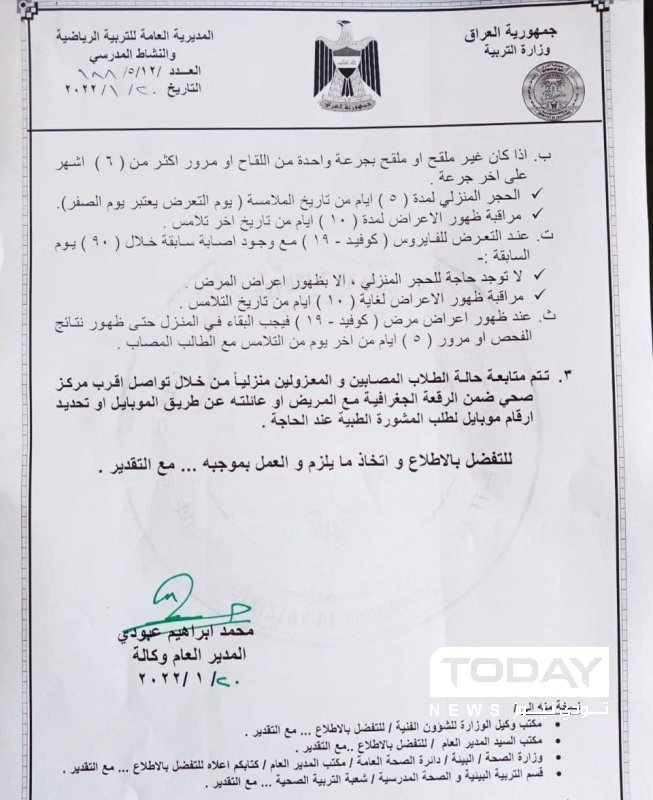 جمهورية العراق
وزارة التربية
المديرية العامة للتربية الرياضية
والنشاط المدرسي
العدد /٥/١٢/ ١٨٨
التاريخ ٢٠/ ١/ ٢٠٢٢
جمهورية العراق
ب. اذا كان غير ملقح او ملقح بجرعة واحدة من اللقاح او مرور اكثر من ( ٦ ) اشهر
على اخر جرعة .
✓ الحجر المنزلي لمدة ( ٥ ) ايام من تاريخ الملامسة ( يوم التعرض يعتبر يوم الصفر).
✓ مراقبة ظهور الاعراض لمدة ( ١٠ ) ايام من تاريخ اخر تلامس .
ت. عند التعرض للفايروس ( كوفيد - ١٩ ) مع وجود اصابة سابقة خلال ( ٩٠ ) يوم
السابقة :-
✓ لا توجد حاجة للحجر المنزلي ، الا بظهور اعراض المرض .
✓ مراقبة ظهور الاعراض لغاية ( ١٠ ) ايام من تاريخ التلامس .
ث. عند ظهور اعراض مرض ( كوفيد - ١٩ ) فيجب البقاء في المنزل حتى ظهور نتائج
الفحص او مرور ( ٥ ) ايام من اخر يوم من التلامس مع الطالب المصاب .
٣. تتم متابعة حالة الطلاب المصابين و المعزولين منزلياً من خلال تواصل اقرب مركز
صحي ضمن الرقعة الجغرافية مع المريض او عائلته عن طريق الموبايل او تحديد
ارقام موبايل لطلب المشورة الطبية عند الحاجة .
للتفضل بالاطلاع و اتخاذ ما يلزم و العمل بموجبه ... مع التقدير .
محمد ابراهيم عبودي
المدير العام وكالة
٢٠/ ١ /٢٠٢٢
TODAY
NEWS توديـــنـــيـــوز
نسخة منه الى /
• مكتب وكيل الوزارة للشؤون الفنية / للتفضل بالاطلاع ... مع التقدير .
• مكتب السيد المدير العام / للتفضل بالاطلاع ..مع التقدير .
• وزارة الصحة / البيئة / دائرة الصحة العامة / مكتب المدير العام / كتابكم اعلاه للتفضل بالاطلاع ... مع التقدير .
• قسم التربية البيئية و الصحة المدرسية / شعبة التربية الصحية ... مع التقدير .